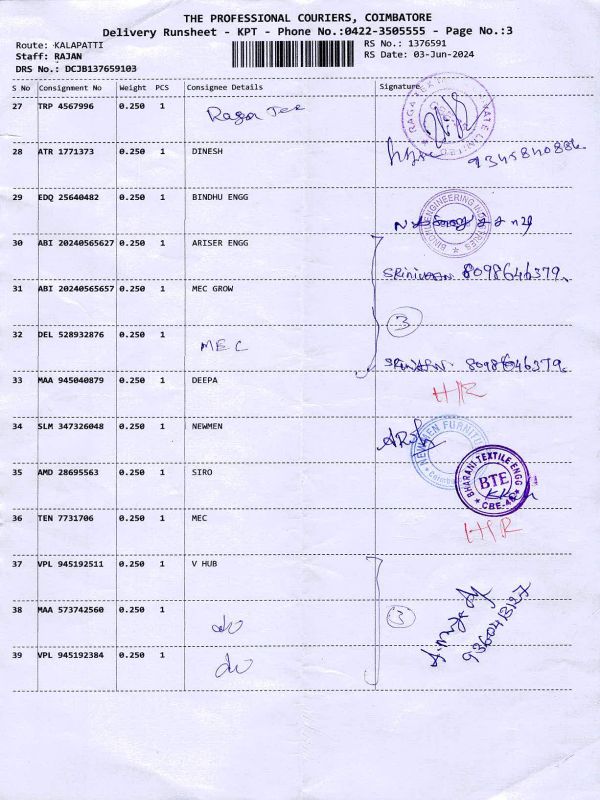 THE PROFESSIONAL COURIERS, COIMBATORE
Delivery Runsheet - KPT - Phone No.:0422-3505555 - Page No.:3
Route: KALAPATTI RS No.: 1376591
Staff: RAJAN RS Date: 03-Jun-2024
DRS No.: DCJB137659103
S No Consignment No Weight PCS Consignee Details Signature
27 TRP 4567996 0.250 1 Raga Tex
28 ATR 1771373 0.250 1 DINESH 9345840886
29 EDQ 25640482 0.250 1 BINDHU ENGG
BINDHU ENGINEERING INDUSTRIES
30 ABI 20240565627 0.250 1 ARISER ENGG
Srinivasan 8098646379
31 ABI 20240565657 0.250 1 MEC GROW
3
32 DEL 528932876 0.250 1 MEC
8098646379
33 MAA 945040879 0.250 1 DEEPA
34 SLM 347326048 0.250 1 NEWMEN
35 AMD 28695563 0.250 1 SIRO
BHARANI TEXTILE ENGG
BTE
36 TEN 7731706 0.250 1 MEC
37 VPL 945192511 0.250 1 V HUB
38 MAA 573742560 0.250 1 do 3
39 VPL 945192384 0.250 1 do